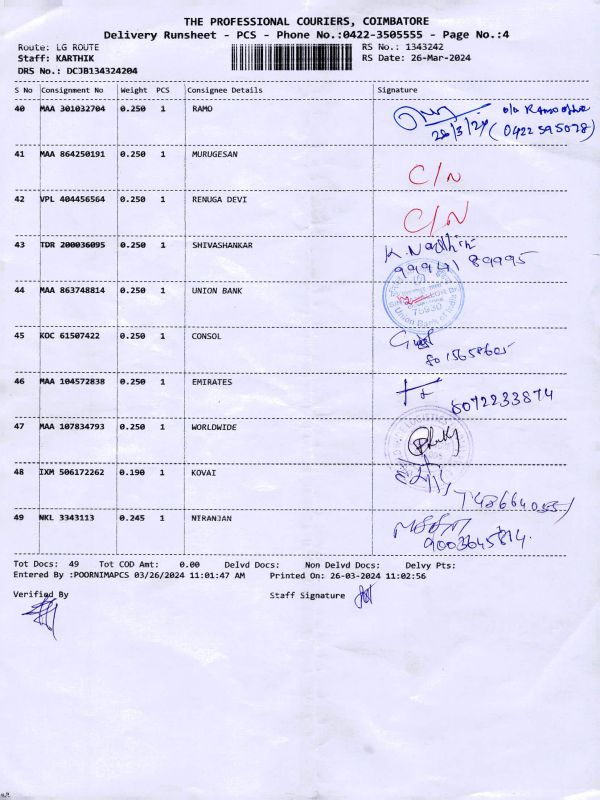 THE PROFESSIONAL COURIERS, COIMBATORE
Delivery Runsheet - PCS - Phone No.:0422-3505555 - Page No.:4
Route: LG ROUTE RS No.: 1343242
Staff: KARTHIK RS Date: 26-Mar-2024
DRS No.: DCJB134324204
S No Consignment No Weight PCS Consignee Details Signature
40 MAA 301032704 0.250 1 RAMO
26/3/24 (0422 595078)
41 MAA 864250191 0.250 1 MURUGESAN
C/N
42 VPL 404456564 0.250 1 RENUGA DEVI
C/N
43 TDR 200036095 0.250 1 SHIVASHANKAR
99941 89995
44 MAA 863748814 0.250 1 UNION BANK
Union Bank of India
45 KOC 61507422 0.250 1 CONSOL
46 MAA 104572838 0.250 1 EMIRATES
8072233874
47 MAA 107834793 0.250 1 WORLDWIDE
48 IXM 506172262 0.190 1 KOVAI
49 NKL 3343113 0.245 1 NIRANJAN
9003645814.
Tot Docs: 49 Tot COD Amt: 0.00 Delvd Docs: Non Delvd Docs: Delvy Pts:
Entered By :POORNIMAPCS 03/26/2024 11:01:47 AM Printed On: 26-03-2024 11:02:56
Verified By Staff Signature